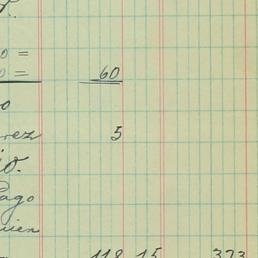 0 =
0 = 60
o
rez 5
io.
Pago
uien
118 15 373